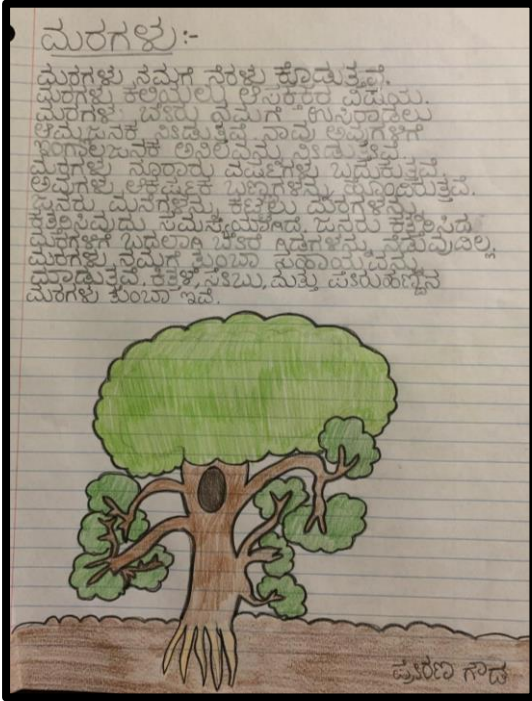 ಮರಗಳು:-
ಮರಗಳು ನಮಗೆ ನೆರಳು ಕೊಡುತ್ತವೆ.
ಮರಗಳು ಕಲಿಯಲು ಆಸಕ್ತಿಕರ ವಿಷಯ.
ಮರಗಳು ಬೇರು ನಮಗೆ ಉಸಿರಾಡಲು
ಆಮ್ಲಜನಕ ನೀಡುತ್ತವೆ ನಾವು ಅವುಗಳಿಗೆ
ಇಂಗಾಲಜನಕ ಅನಿಲವನ್ನು ನೀಡುತ್ತೇವೆ.
ಮರಗಳು ನೂರಾರು ವರ್ಷಗಳು ಬದುಕುತ್ತವೆ
ಅವುಗಳು ಆಕರ್ಷಕ ಬಣ್ಣಗಳನ್ನು ಹೊಂದಿರುತ್ತವೆ.
ಜನರು ಮನೆಗಳನ್ನು ಕಟ್ಟಲು ಮರಗಳನ್ನು
ಕತ್ತರಿಸುವುದು ಸಮಸ್ಯೆಯಾಗಿದೆ. ಜನರು ಕತ್ತರಿಸಿದ
ಮರಗಳಿಗೆ ಬದಲಾಗಿ ಬೇರೆ ಗಿಡಗಳನ್ನು ನೆಡುವುದಿಲ್ಲ.
ಮರಗಳು ನಮಗೆ ತುಂಬಾ ಸಹಾಯವನ್ನು
ಮಾಡುತ್ತವೆ. ಕಿತ್ತಳೆ, ಸೇಬು, ಮತ್ತು ಪೇರುಹಣ್ಣಿನ
ಮರಗಳು ತುಂಬಾ ಇವೆ.
ಪ್ರೇರಣ ಗೌಡ